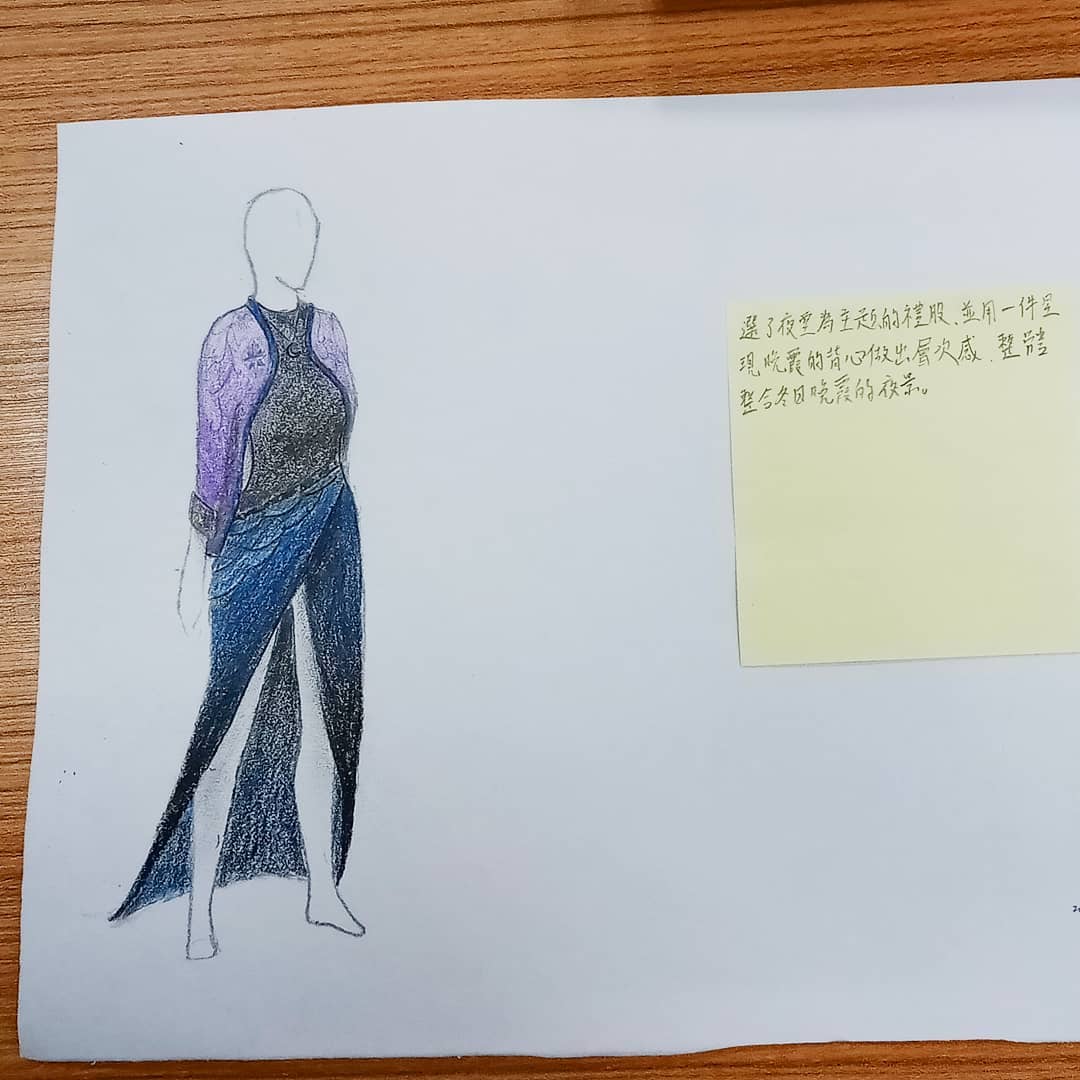 選了夜空為主題的禮服、並用一件呈
現晚霞的背心做出層次感、整體
整合冬日晚霞的夜景。